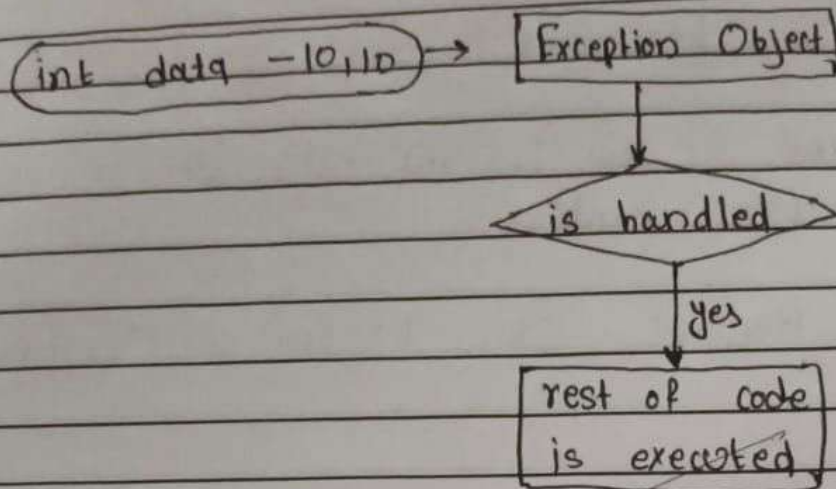 int data -10,10
Exception Object
is handled
yes
rest of code
is executed